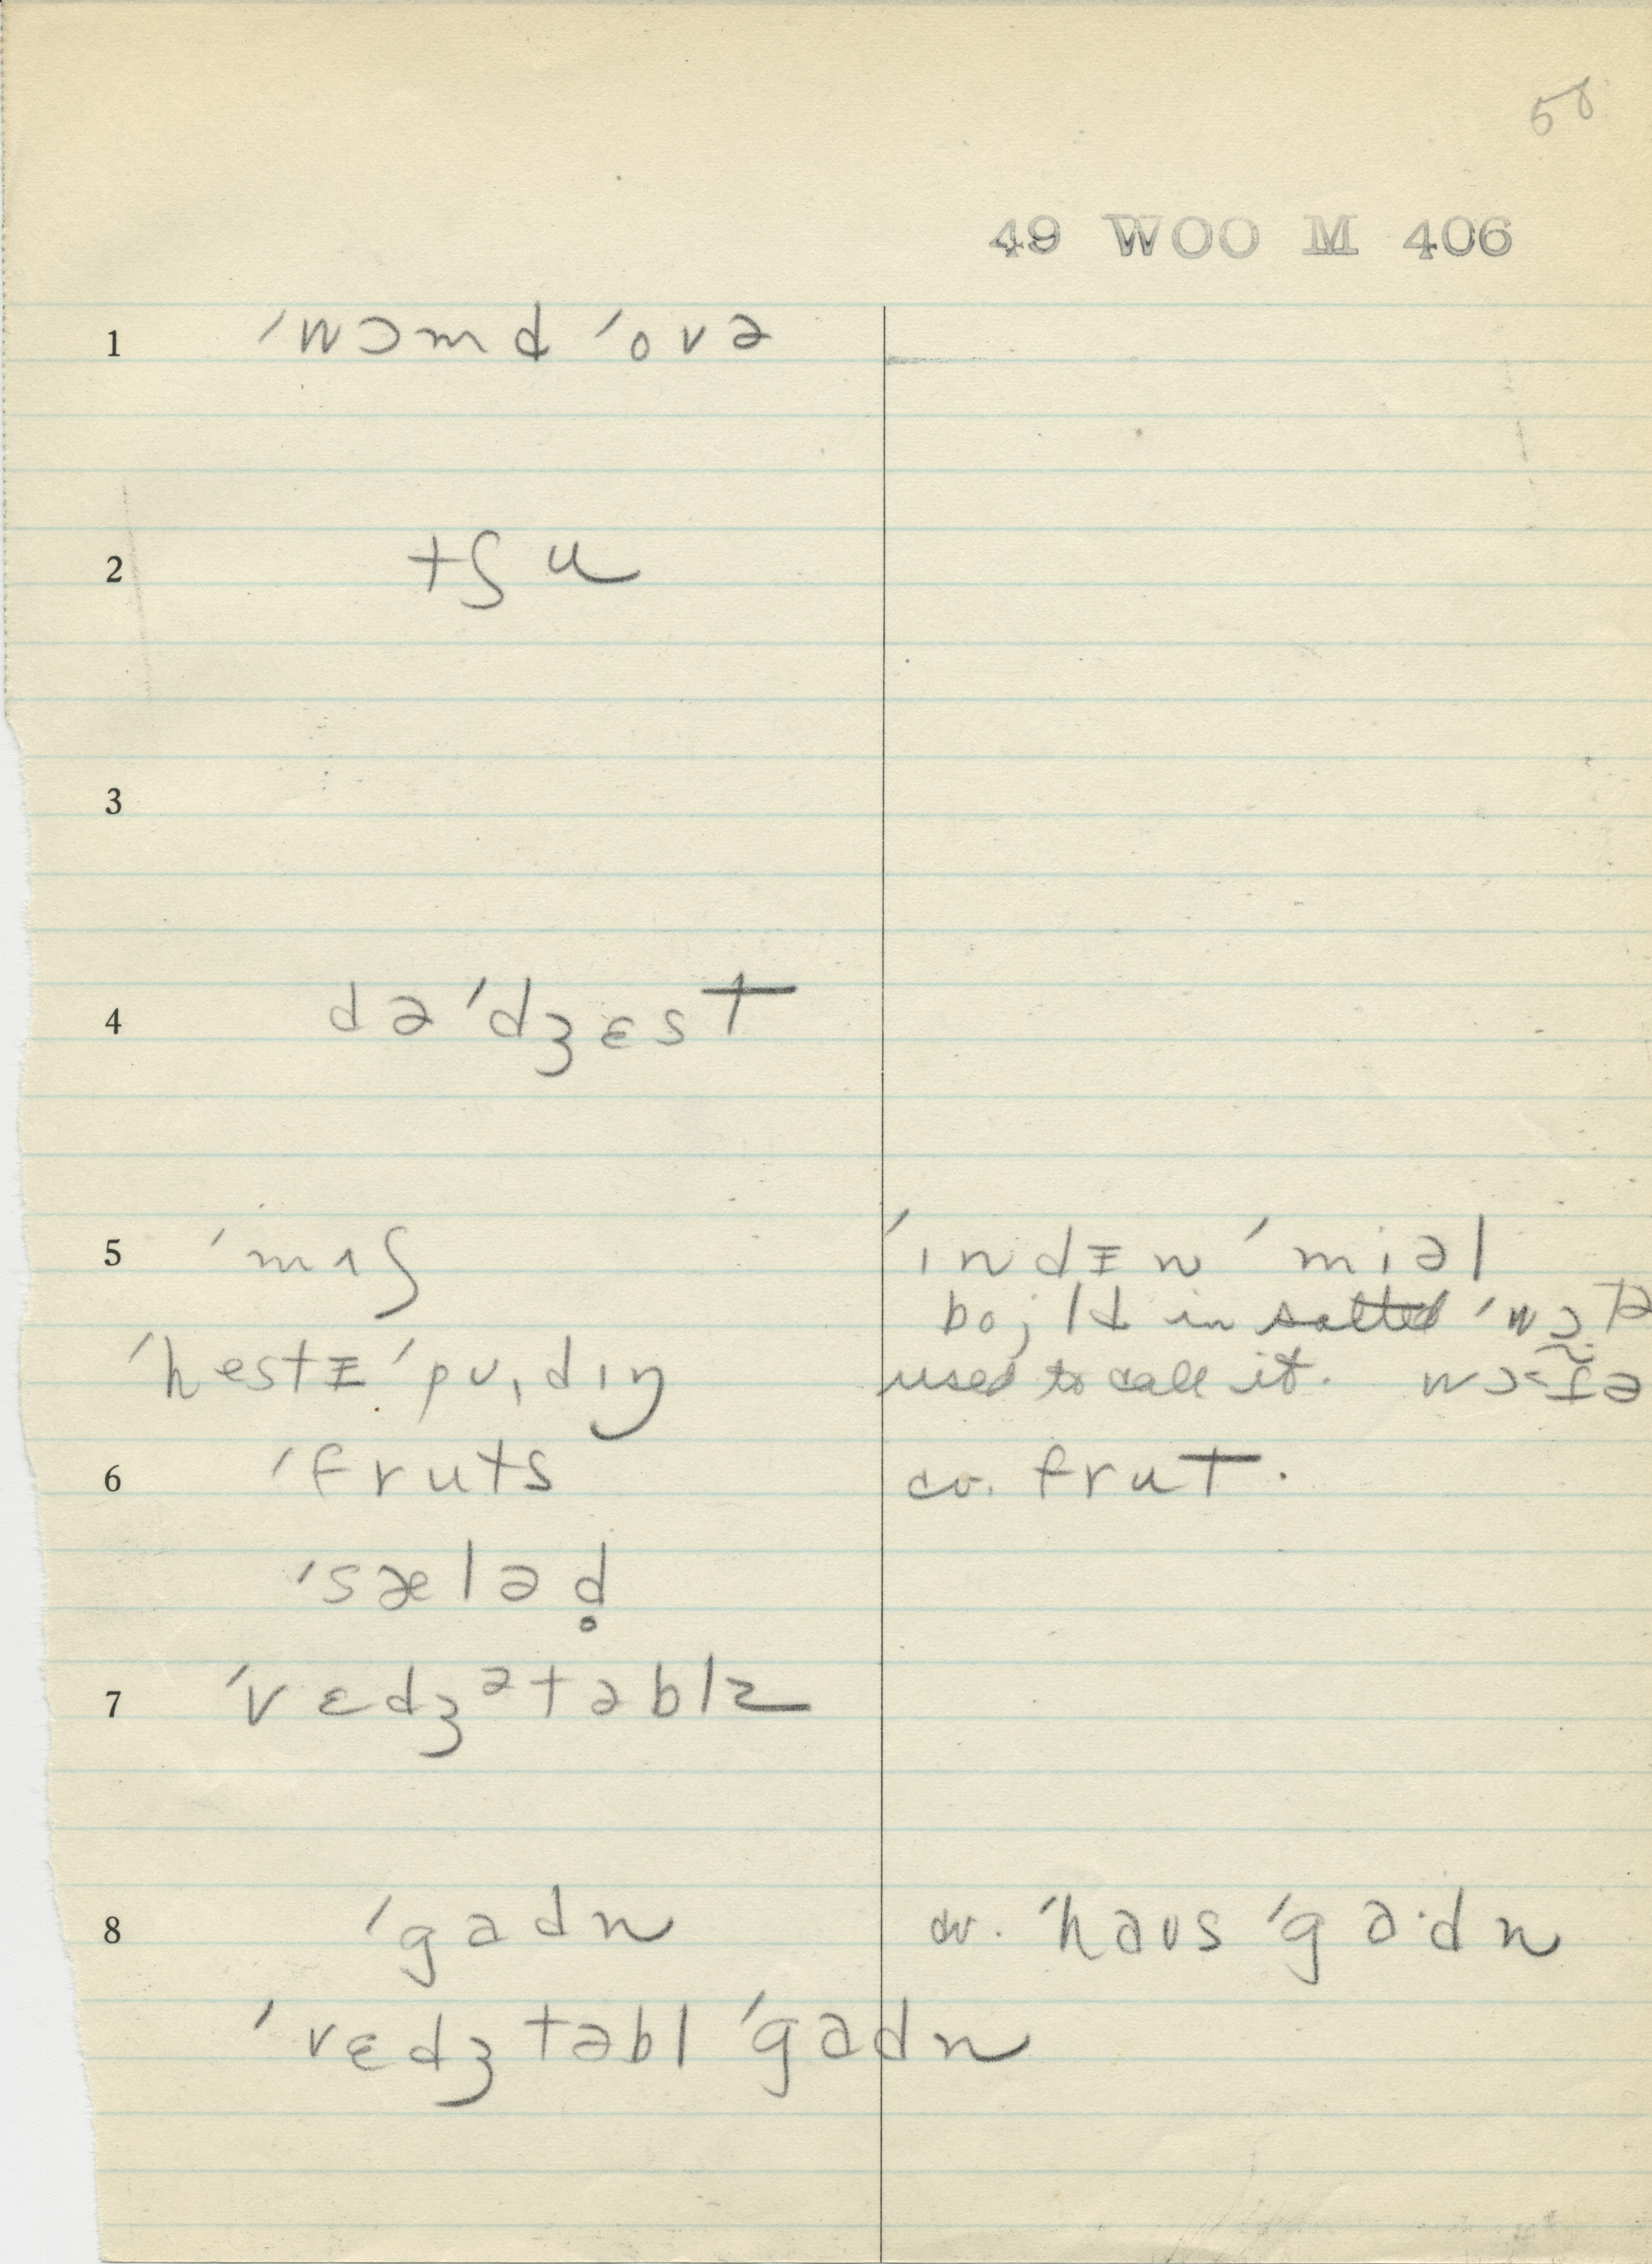 58
49 WOO M 406
1 ˈwɔmd ˈovə
2 tʃu
3
4 dəˈdʒɛst
5 ˈmʌʃ ˈɪndɪn ˈmiəl
bɔjld in salted ˈwɔtə
ˈhestɪ ˈpʊˌdɪŋ used to call it. wɔtə
6 ˈfruts cv. frut.
ˈsæləd̥
7 ˈvɛdʒᵊtəblz
8 ˈgadn cv. ˈhaʊs ˈga·dn
ˈvɛdʒtəbl ˈgadn